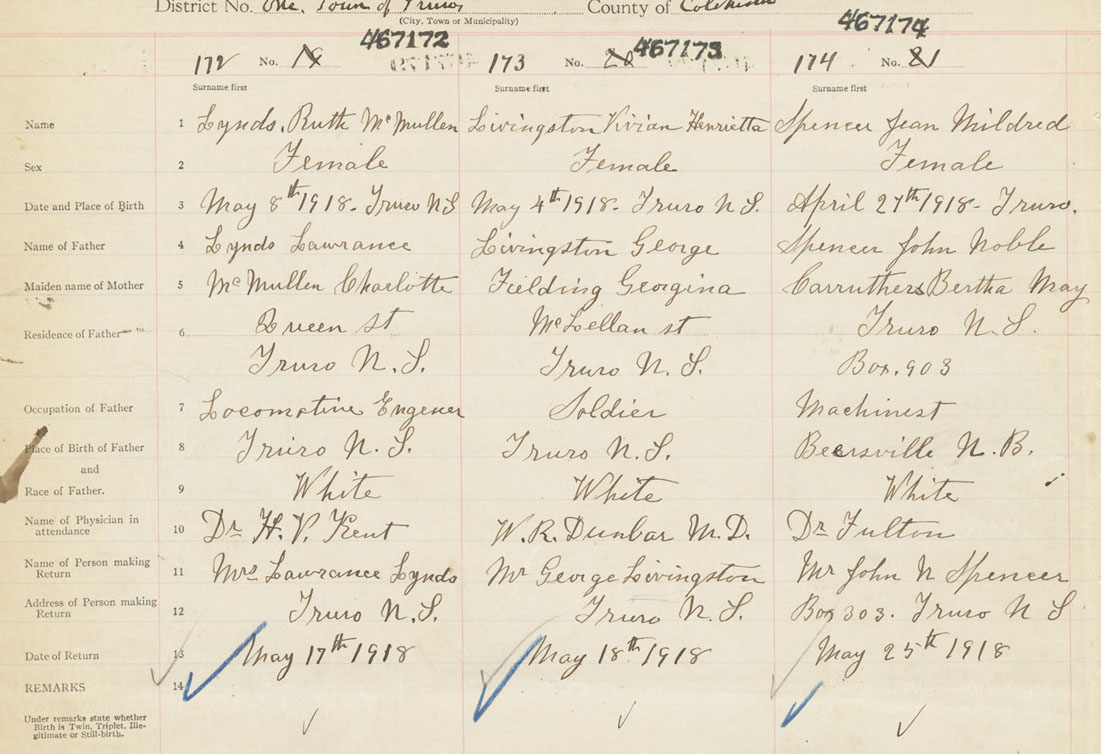 District No. One. Town of Truro County of Colchester
(City, Town or Municipality)
467172 467173 467174
172 No. 19 173 No. 20 174 No. 21
Surname first Surname first Surname first
Name 1 Lynds, Ruth McMullen Livingston Vivian Henrietta Spencer Jean Mildred
Sex 2 Female Female Female
Date and Place of Birth 3 May 8th 1918. Truro N S May 4th 1918. Truro N S. April 27th 1918. Truro.
Name of Father 4 Lynds Lawrance Livingston George Spencer John Noble
Maiden name of Mother 5 McMullen Charlotte Fielding Georgina Carruthers Bertha May
Residence of Father 6 Queen st McLellan st Truro N.S.
Truro N.S. Truro N.S. Box. 903
Occupation of Father 7 Locomotive Engener Soldier Machinest
Place of Birth of Father 8 Truro N.S. Truro N.S. Beersville N.B.
and
Race of Father. 9 White White White
Name of Physician in
attendance 10 Dr H. V. Kent W. R. Dunbar M.D. Dr Fulton
Name of Person making
Return 11 Mrs Lawrance Lynds Mr George Livingston Mr John N Spencer
Address of Person making
Return 12 Truro N.S. Truro N.S. Box 303. Truro N S
Date of Return 13 May 17th 1918 May 18th 1918 May 25th 1918
REMARKS 14
Under remarks state whether
Birth is Twin, Triplet, Ille-
gitimate or Still-birth.